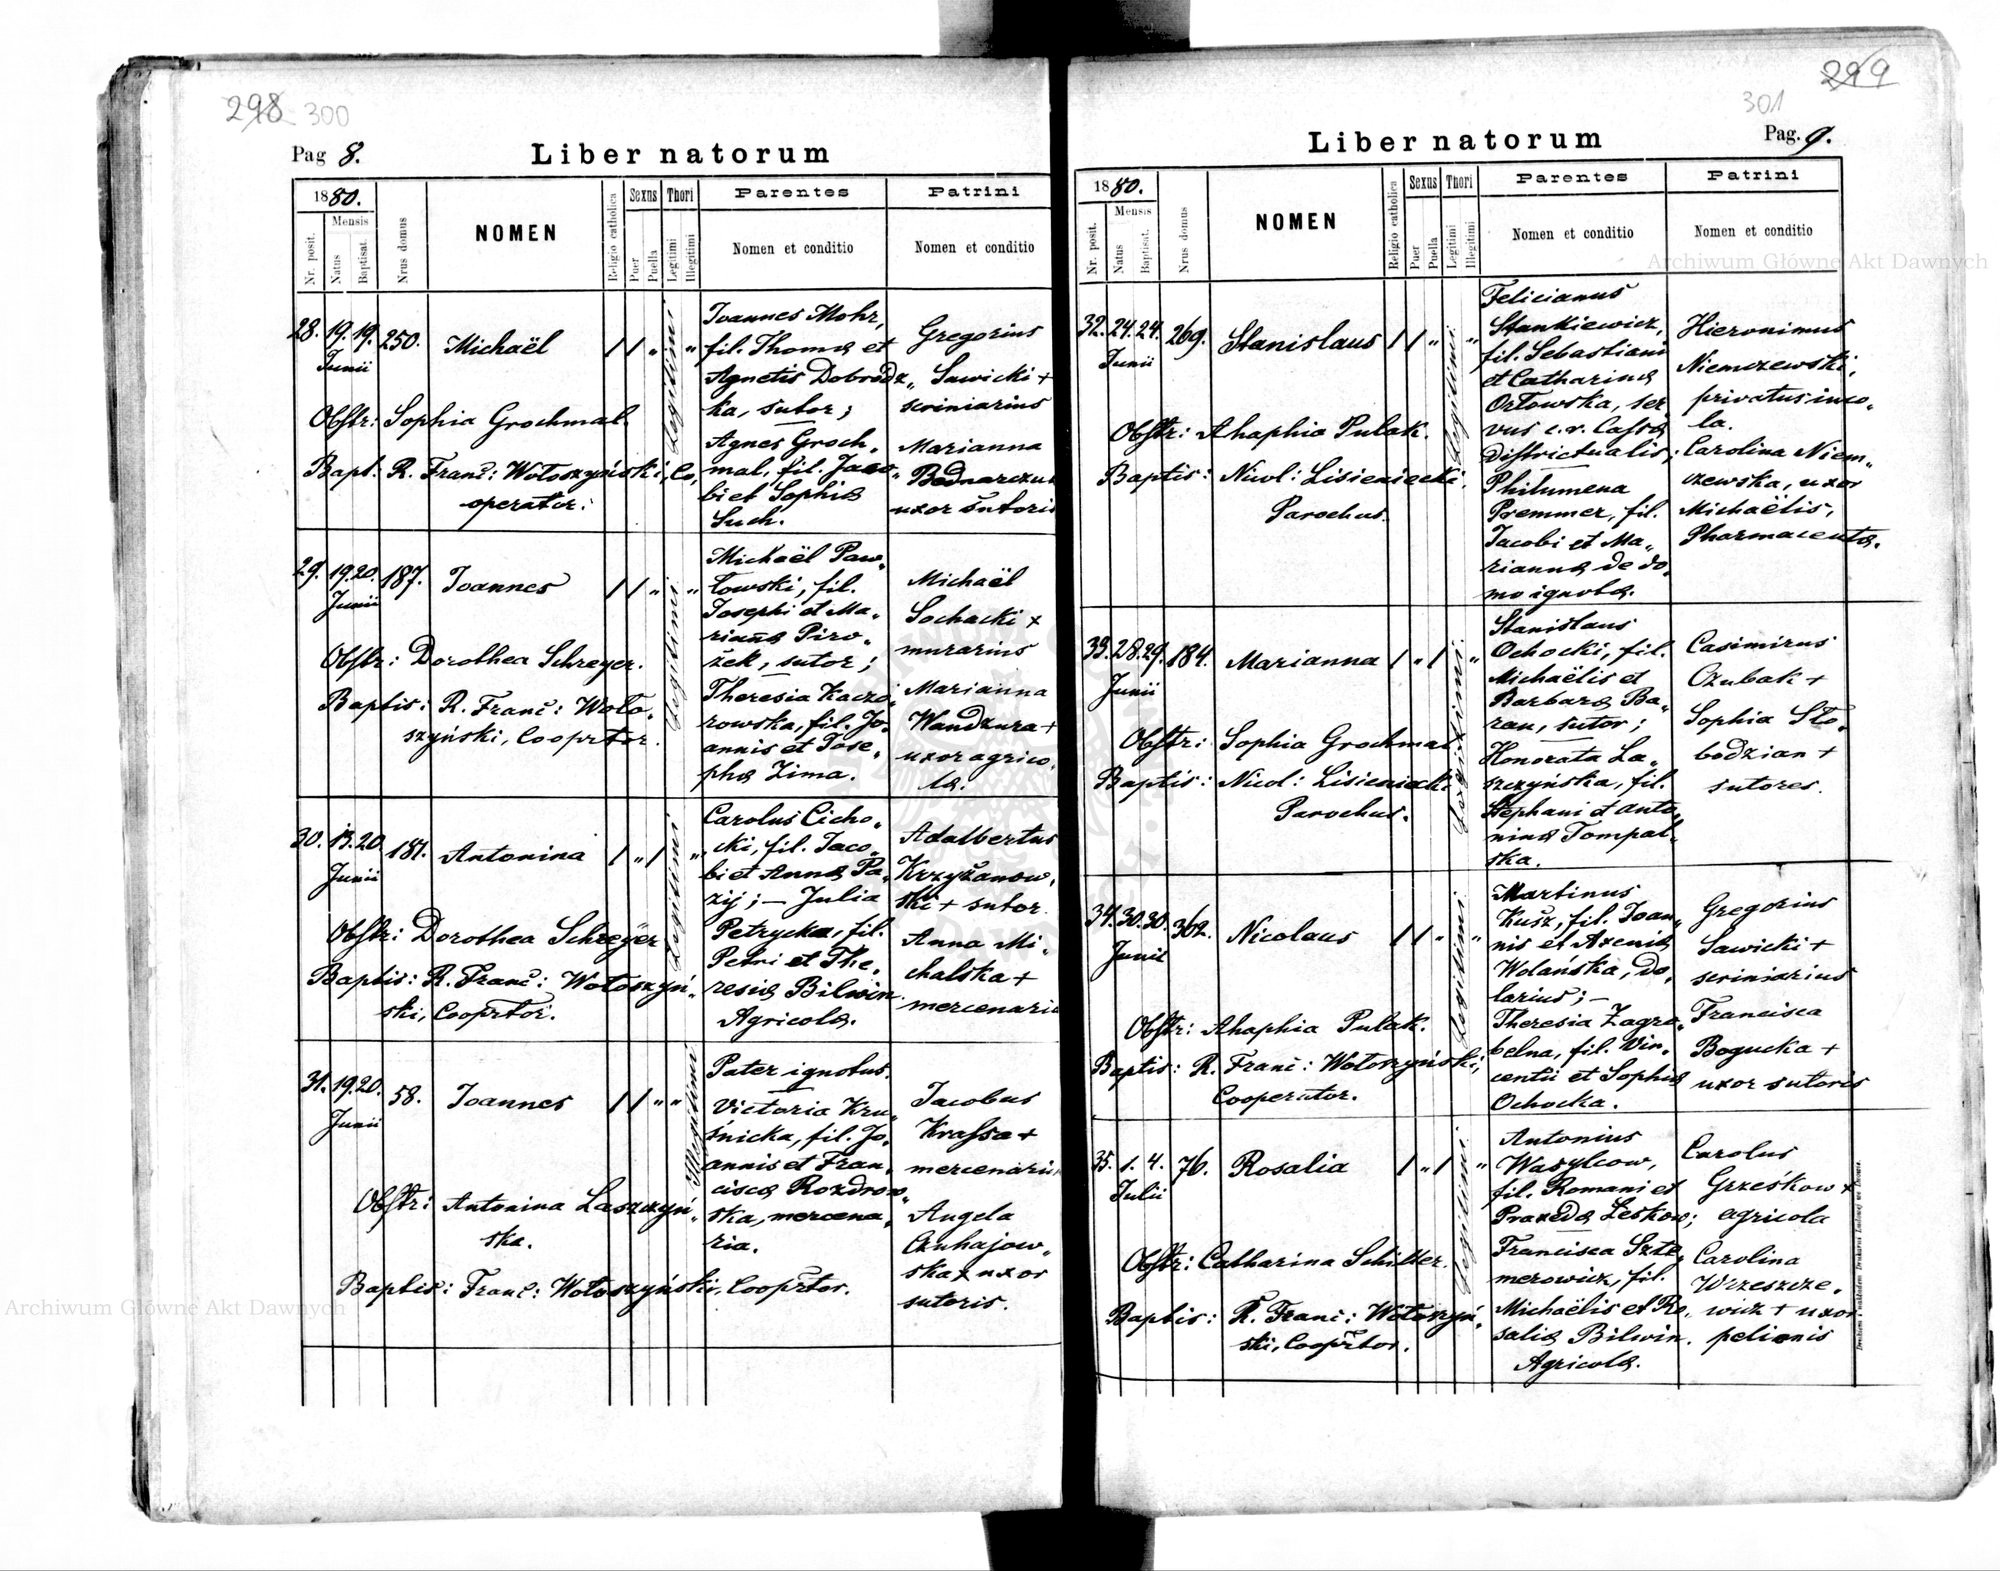 298 300
Pag 8.
Liber natorum
1880.
Mensis
Nr. posit.
Natus
Baptisat.
Nrus domus
NOMEN
Religio catholica
Sexus
Puer
Puella
Thori
Legitimi
Illegitimi
Parentes
Nomen et conditio
Patrini
Nomen et conditio
28. 19. 19. 250. Michaël / / „ „
Junii
Legitimi
Obstr: Sophia Grochmal.
Bapt: R. Franc: Wołoszyński, Co„
operator.
Joannes Mohr,
fil. Thomæ et
Agnetis Dobrodz„
ka, sutor;
Agnes Groch„
mal, fil. Jaco„
bi et Sophiæ
Such.
Gregorius
Sawicki +
scriniarius
Marianna
Bednarczuk
uxor sutoris
29. 19. 20. 187. Joannes / / „ „
Junii
Legitimi
Obstr: Dorothea Schreyer.
Baptis: R. Franc: Woło„
szyński, Cooprtor.
Michaël Paw„
łowski, fil.
Josephi et Ma„
riannæ Piro„
żek, sutor;
Theresia Kaczo„
rowska, fil. Jo„
annis et Jose„
phæ Zima.
Michaël
Sochacki +
murarius
Marianna
Wandzura +
uxor agrico„
læ.
30. 13. 20. 181. Antonina / „ / „
Junii
Legitimi
Obstr: Dorothea Schreyer
Baptis: R. Franc: Wołoszyń„
ski, Cooprtor.
Carolus Cicho„
cki, fil. Jaco„
bi et Annæ Pa„
zij; – Julia
Petrycka, fil.
Petri et The„
resiæ Bilwin.
Agricolæ.
Adalbertus
Krzyżanow„
ski + sutor
Anna Mi„
chalska +
mercenaria
31. 19. 20. 58. Joannes / / „ „
Junii
Illegitimi
Obstr: Antonina Laszczyń„
ska.
Baptis: Franc: Wołoszyński, Cooprtor.
Pater ignotus.
Victoria Kru„
śnicka, fil. Jo„
annis et Fran„
ciscæ Rozdrow„
ska, mercena„
ria.
Jacobus
Krassa +
mercenarius
Angela
Czuhajow„
ska x uxor
sutoris.
299
301
Liber natorum
Pag. 9.
1880.
Mensis
Nr. posit.
Natus
Baptisat.
Nrus domus
NOMEN
Religio catholica
Sexus
Puer
Puella
Thori
Legitimi
Illegitimi
Parentes
Nomen et conditio
Patrini
Nomen et conditio
32. 24. 24. 269. Stanislaus / / „ „
Junii
Legitimi
Obstr: Ahaphia Pulak.
Baptis: Nicol: Lisieniecki,
Parochus.
Felicianus
Stankiewicz,
fil. Sebastiani
et Catharinæ
Orłowska, ser„
vus c.r. Cassæ
districtualis;
Philumena
Premmer, fil.
Jacobi et Ma„
riannæ de do„
mo ignota.
Hieronimus
Niemczewski,
privatus inco„
la.
Carolina Niem„
czewska, uxor
Michaëlis,
Pharmaceutæ.
33. 28. 29. 184. Marianna / „ / „
Junii
Legitimi
Obstr: Sophia Grochmal
Baptis: Nicol: Lisieniecki
Parochus.
Stanislaus
Ochocki, fil.
Michaëlis et
Barbaræ Ba„
ran, sutor;
Honorata La„
szczyńska, fil.
Stephani et Anto„
ninæ Tompal„
ska.
Casimirus
Czubak +
Sophia Sło„
bodzian +
sutores.
34. 30. 30. 362. Nicolaus / / „ „
Junii
Legitimi
Obstr: Ahaphia Pulak.
Baptis: R. Franc: Wołoszyński,
Cooperator.
Martinus
Kusz, fil. Joan„
nis et Axeniæ
Wolańska, do„
larius; –
Theresia Zagro„
belna, fil. Vin„
centii et Sophiæ
Ochocka.
Gregorius
Sawicki +
scriniarius
Francisca
Bogucka +
uxor sutoris
35. 1. 4. 76. Rosalia / „ / „
Julii
Legitimi
Obstr: Catharina Schiller.
Baptis: R. Franc: Wołoszyń„
ski, Cooprtor.
Antonius
Wasylcow,
fil. Romani et
Praxedæ Leskow;
Francisca Szte„
merowicz, fil.
Michaëlis et Ro„
saliæ Bilwin.
Agricolæ.
Carolus
Grześkow x
agricola
Carolina
Wrzeszcze„
wicz + uxor
pelionis
Archiwum Główne Akt Dawnych
Archiwum Główne Akt Dawnych